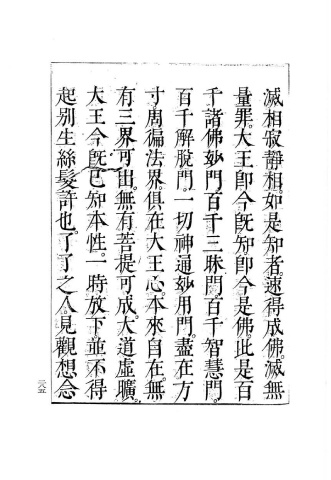 滅相寂靜相。如是知者。速得成佛。滅無
量罪。大王卽今旣知卽今是佛。此是百
千諸佛妙門百千三昧門百千智慧門。
百千解脫門。一切神通妙用門。盡在方
寸周徧法界。俱在大王心。本來自在。無
有三界可出。無有菩提可成。大道虛曠。
大王今旣已知本性。一時放下並不得
起別生絲髮許也。了了之人。見觀想念
三八五